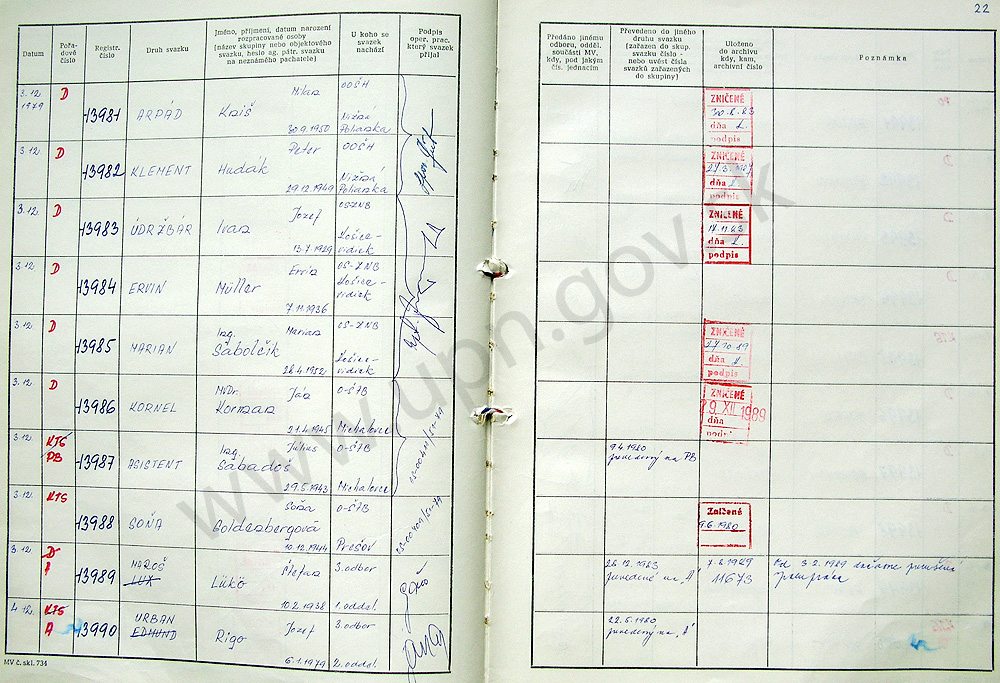 22
Datum
Pořa-
dové
číslo
Registr.
číslo
Druh svazku
Jméno, příjmení, datum narození
rozpracované osoby
(název skupiny nebo objektového
svazku, heslo ag. pátr. svazku
na neznámého pachatele)
U koho se
svazek
nachází
Podpis
oper. prac.
který svazek
přijal
Předáno jinému
odboru, odděl.
součásti MV,
kdy, pod jakým
čís. jednacím
Převedeno do jiného
druhu svazku
(zařazen do skup.
svazku číslo -
nebo uvést čísla
svazků zařazených
do skupiny)
Uloženo
do archivu
kdy, kam,
archivní číslo
Poznámka
3.12. 1979 D 13981 ARPÁD Kriš Milan 30.9.1950 OOŠH Nižná Polianka
ZNIČENÉ
dňa
podpis
3.12. D 13982 KLEMENT Hudák Peter 29.12.1949 OOŠH Nižná Polianka
ZNIČENÉ
dňa
podpis
3.12. D 13983 ÚDRŽBÁR Ivan Jozef 13.7.1929 Košice-vidiek
ZNIČENÉ
dňa
podpis
3.12. D 13984 ERVIN Müller Ervin 7.11.1936 OS-ZNB Košice-vidiek
3.12. D 13985 MARIAN Ing. Sabolčik Marian 26.4.1952 OS-ZNB Košice-vidiek
ZNIČENÉ
27.10.89
dňa
podpis
3.12. D 13986 KORNEL MVDr. Korman Ján 21.4.1945 O-ŠTB Michalovce
ZNIČENÉ
29 XII 1989
dňa
3.12. KTS PB 13987 ASISTENT Ing. Sabadoš Július 29.5.1943 O-ŠTB Michalovce
9.4.1980
prevedený na PB
3.12. KTS 13988 SOŇA Goldenbergová Soňa 10.12.1944 O-ŠTB Prešov
Zničené
9.6.1980
3.12. D 13989 MAROŠ LUX Lükö Štefan 10.2.1938 3.odbor 1.oddel.
prevedené na „A"
11673
4.12. KTS A 13990 URBAN EDMUND Rigo Jozef 3.odbor 2.oddel.
22.5.1980
prevedený na „A"
MV č. skl. 734
www.upn.gov.sk